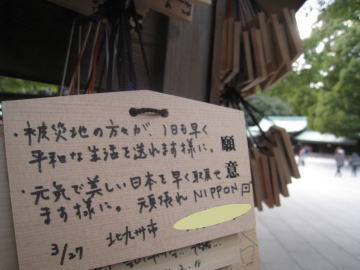 ・被災地の方々が、1日も早く
平和な生活を送れます様に。
・元気で美しい日本を早く取戻せ
ます様に。頑張れNIPPON
3/27 北九州市
願意